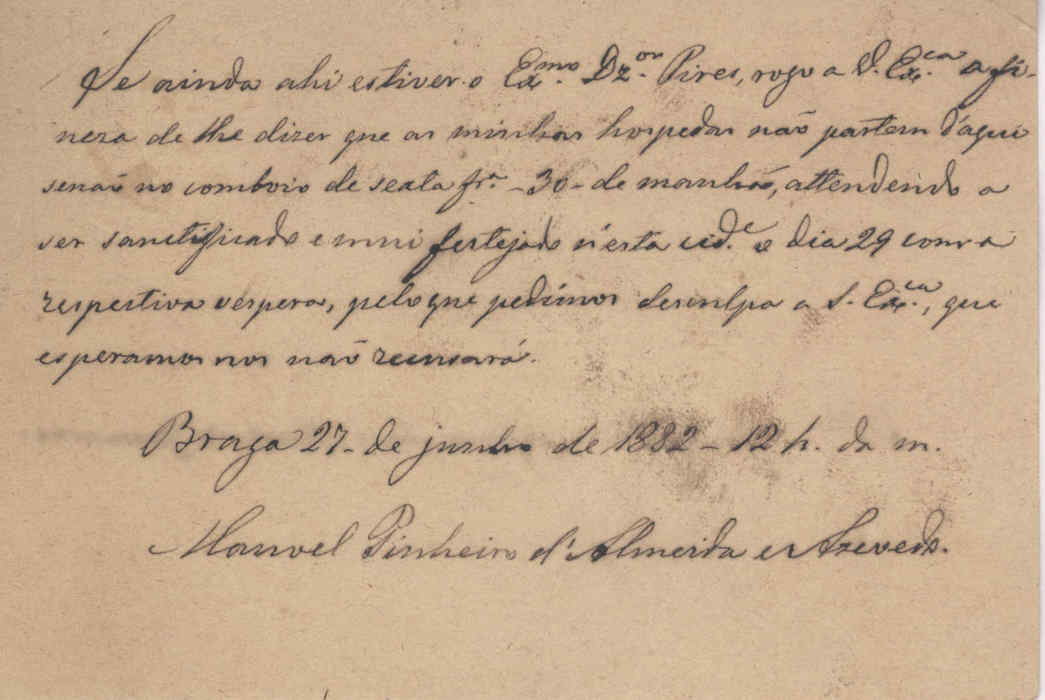 Se ainda ahi estiver o Ex.mo Dr.or Pires, rogo a V. Ex.ca a fi-
neza de lhe dizer que as minhas hospedas não partem d'aqui
senão no comboio de sexta fr.a - 30 - de manhã, attendendo a
ser sanctificado e mui festejado n'esta cid.e o dia 29 com a
respectiva vespera, pelo que pedimos desculpa a S. Ex.ca, que
esperamos nos não recusará.
Braga 27 - de junho de 1882 - 12 h. da m.
Manoel Pinheiro d'Almeida e Azevedo.